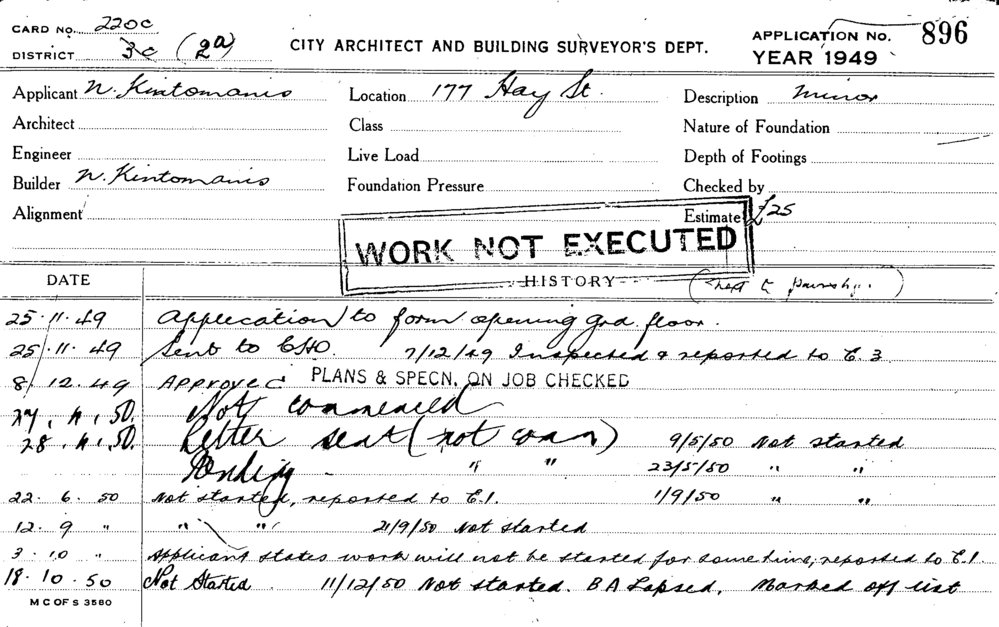 CARD NO. 220C
DISTRICT 3c (2a)
CITY ARCHITECT AND BUILDING SURVEYOR'S DEPT.
APPLICATION NO. 896
YEAR 1949
Applicant N. Kintomanis Location 177 Hay St. Description Minor
Architect Class Nature of Foundation
Engineer Live Load Depth of Footings
Builder N. Kintomanis Foundation Pressure Checked by
Alignment Estimate £25
WORK NOT EXECUTED
DATE HISTORY
25.11.49 Application to form opening grd. floor.
25.11.49 Sent to CHO. 7/12/49 Inspected & reported to E.3
8.12.49 Approved PLANS & SPECN. ON JOB CHECKED
27.4.50. Not commenced
28.4.50. Letter sent (not com) 9/5/50 Not started
Pending " " 23/5/50 " "
22.6.50 Not started, reported to E.1. 1/9/50 " "
12.9 " " " 21/9/50 Not started
3.10 " Applicant states work will not be started for some time; reported to E.1.
18.10.50 Not Started. 11/12/50 Not started. B A Lapsed. Marked off list
M C OF S 3580